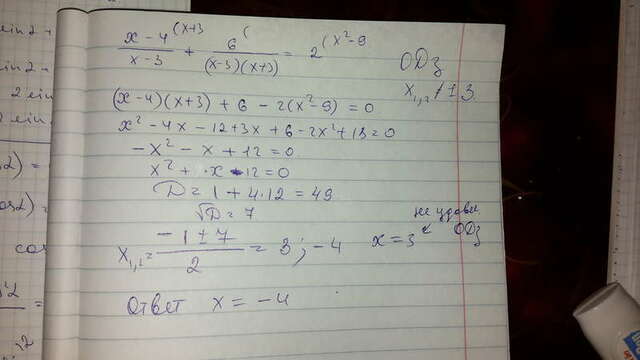 ein2
ein
2 ein
(x-4)/(x-3) (x+3 + 6/((x-3)(x+3)) ( = 2 (x²-9
ОДЗ
x₁,₂ ≠ ±3
(x-4)(x+3) + 6 - 2(x²-9) = 0
x² - 4x - 12 + 3x + 6 - 2x² + 18 = 0
-x² - x + 12 = 0
x² + x - 12 = 0
D = 1 + 4·12 = 49
√D = 7
x₁,₂ = (-1±7)/2 = 3; -4 x = 3 не удовл. ОДЗ
Ответ x = -4
cos